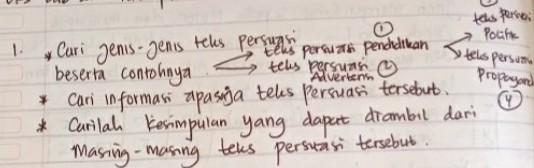 teks persuasi
① Politik
1. * Cari Jenis-Jenis teks persuasi teks persuasi pendidikan
beserta contohnya teks persuasi ② teks persuasi
Advertensi Propagand
* Cari informasi apasaja teks Persuasi tersebut. ④
* Carilah kesimpulan yang dapat diambil dari
Masing-masing teks persuasi tersebut.